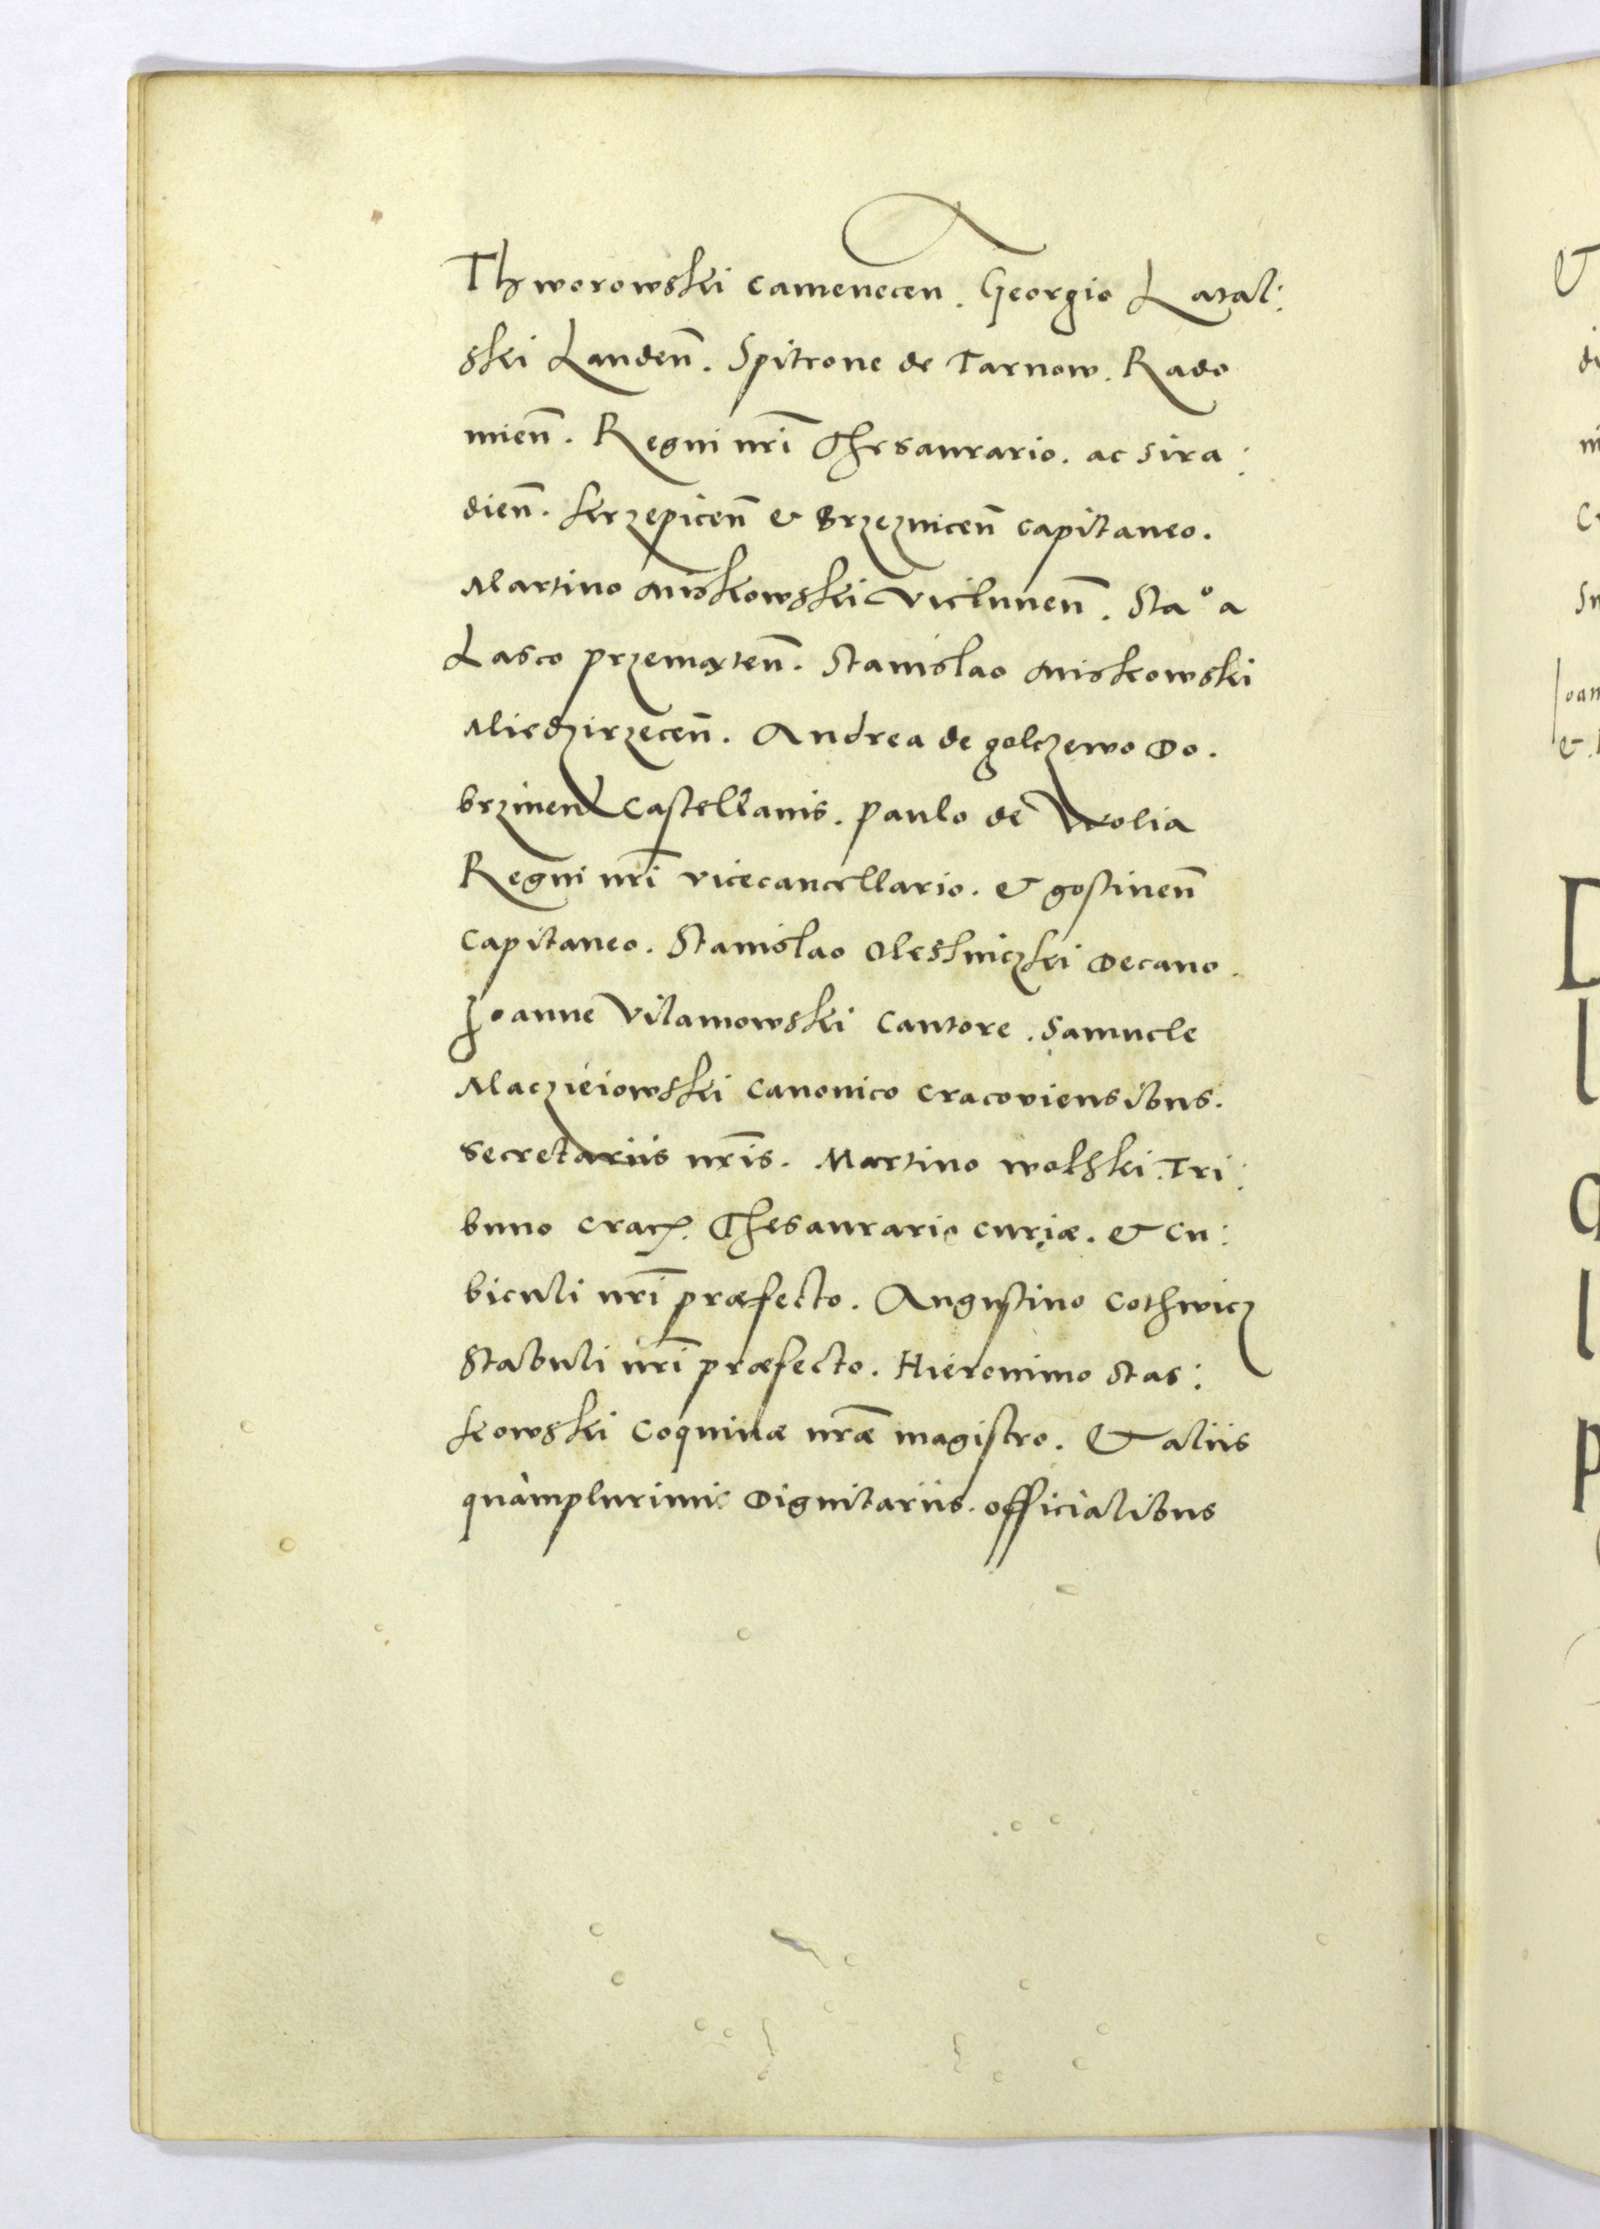 Thworowski camenecen. Georgio Latal:
ski Landen̄. Spitkone de Tarnow. Rado
mien̄. Regni nr̄i Thesaurario. ac Sira:
dien̄. krzepicen̄ & Brzeznicen̄ capitaneo.
Martino Miskowski Vielunen̄. Staº a
Lasco przemęten̄. Stanislao Miskowski
Miedzirzecen̄. Andrea de golczewo Do.
brzinen̄ castellanis. Paulo de Wolia
Regni nr̄i vicecancellario. & gostinen̄
capitaneo. Stanislao Oleshniczki Decano.
Joanne Vilamowski Cantore. Samuele
Maczieiowski canonico cracoviensibus.
Secretariis nr̄is. Martino wolski. Tri:
buno crac. Thesaurario curiæ. & Cu:
biculi nr̄i præfecto. Augustino Cothwicz
Stabuli nr̄i præfecto. Hieronimo Stas:
kowski Coquinæ nr̄æ magistro. & aliis
quàmplurimis Dignitariis. officialibus
&
D